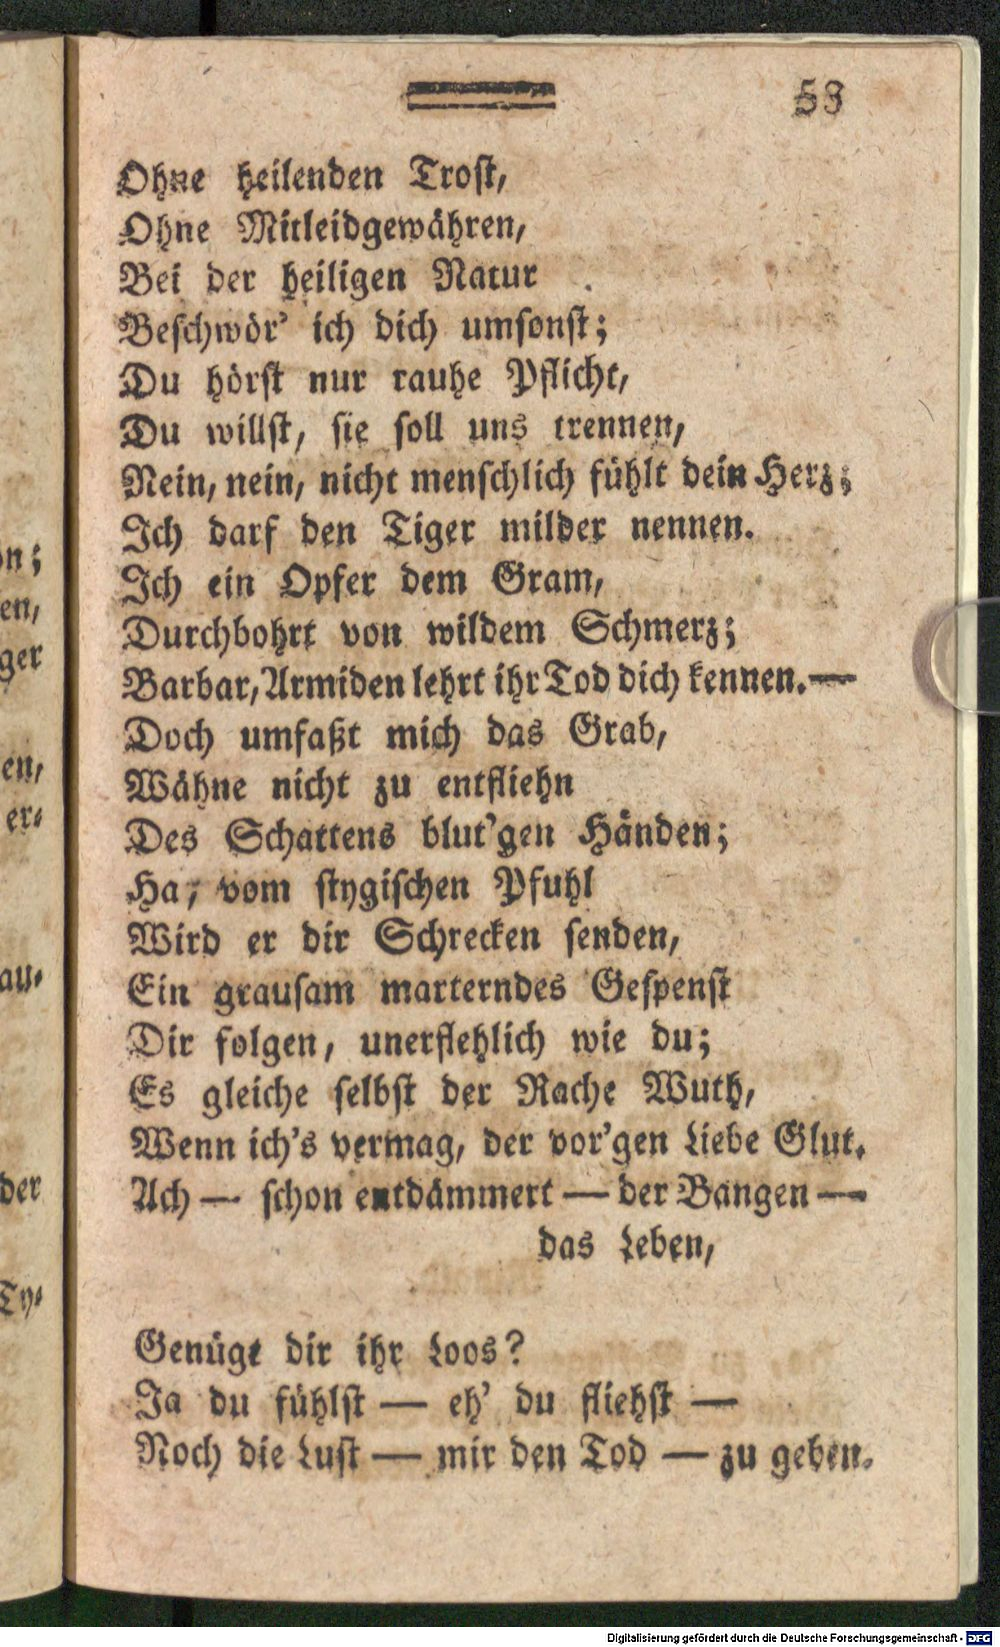 53
Ohne heilenden Trost,
Ohne Mitleidgewähren,
Bei der heiligen Natur
Beschwör' ich dich umsonst;
Du hörst nur rauhe Pflicht,
Du willst, sie soll uns trennen,
Nein, nein, nicht menschlich fühlt dein Herz;
Ich darf den Tiger milder nennen.
Ich ein Opfer dem Gram,
Durchbohrt von wildem Schmerz;
Barbar, Armiden lehrt ihr Tod dich kennen.—
Doch umfaßt mich das Grab,
Wähne nicht zu entfliehn
Des Schattens blut'gen Händen;
Ha, vom stygischen Pfuhl
Wird er dir Schrecken senden,
Ein grausam marterndes Gespenst
Dir folgen, unerflehlich wie du;
Es gleiche selbst der Rache Wuth,
Wenn ich's vermag, der vor'gen Liebe Glut.
Ach — schon entdämmert — der Bangen —
das Leben,
Genügt dir ihr Loos?
Ja du fühlst — eh' du fliehst —
Noch die Lust — mir den Tod — zu geben.
on;
en,
ger
en,
er=
au=
der
Ty=
Digitalisierung gefördert durch die Deutsche Forschungsgemeinschaft - DFG